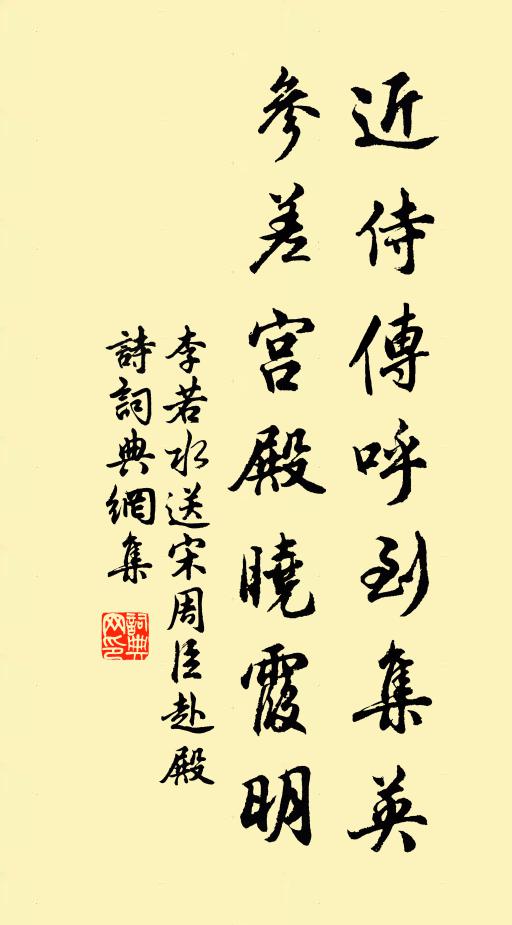 近侍傳呼到集英
參差宮殿曉霞明
李若水送宋周臣赴殿
詩詞典網集
詞典网印